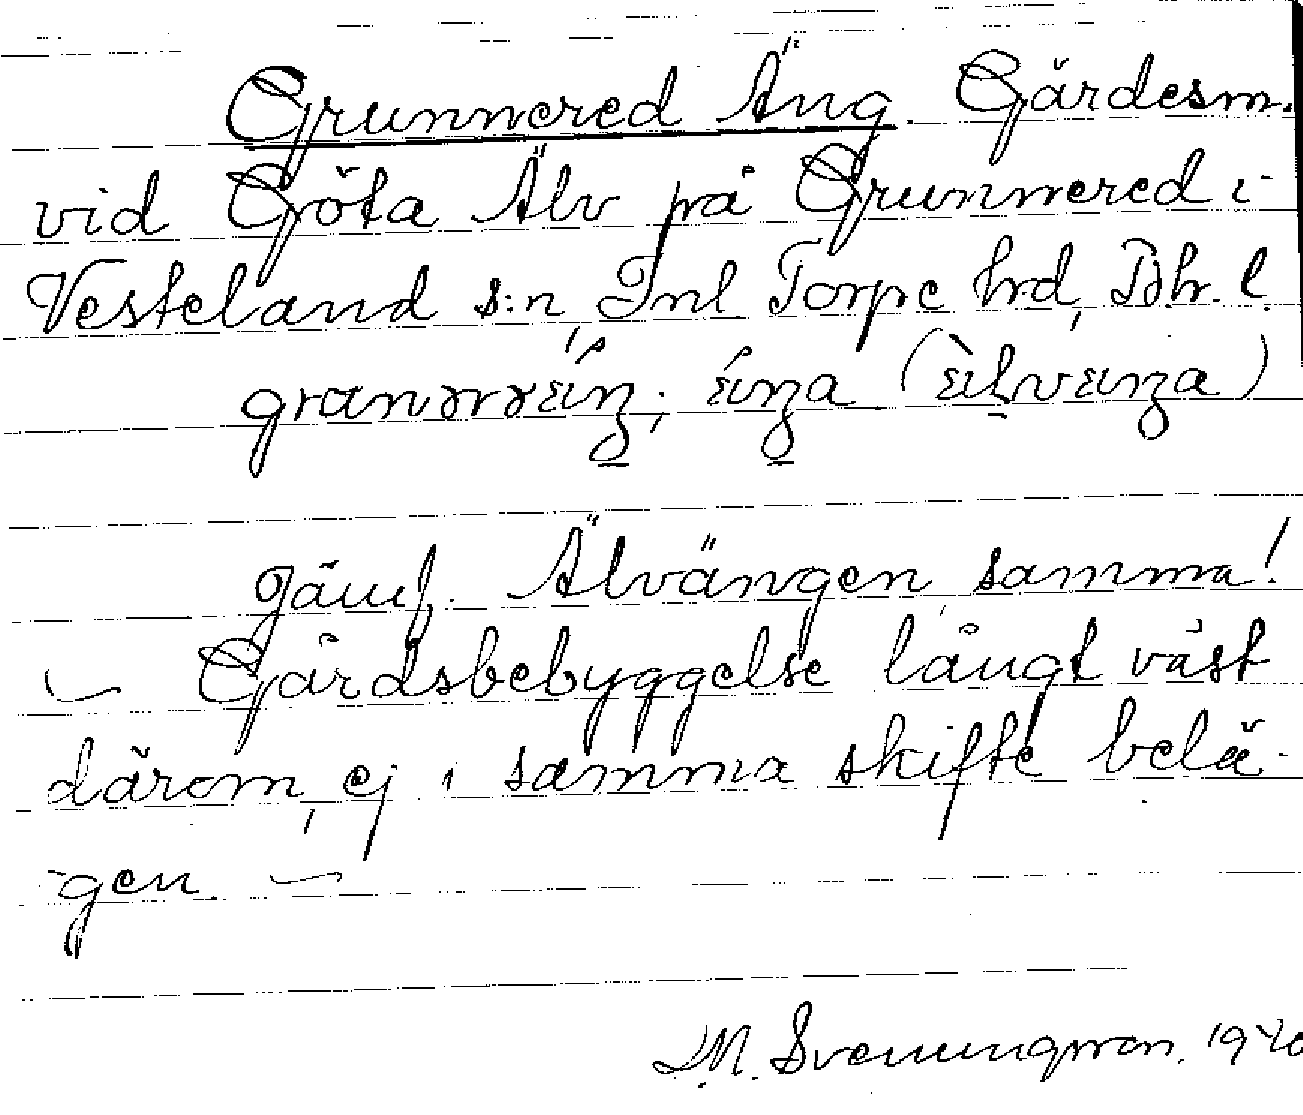 Grunnered Äng. Gärdesm.
vid Göta Älv på Grunnered i
Vesteland s:n, Inl Torpe hrd, Bhr. l.
Jämf. Älvängen samma!
— Gårdsbebyggelse långt väst
därom, ej i samma skifte belä-
gen —
Svenungsson. 1940